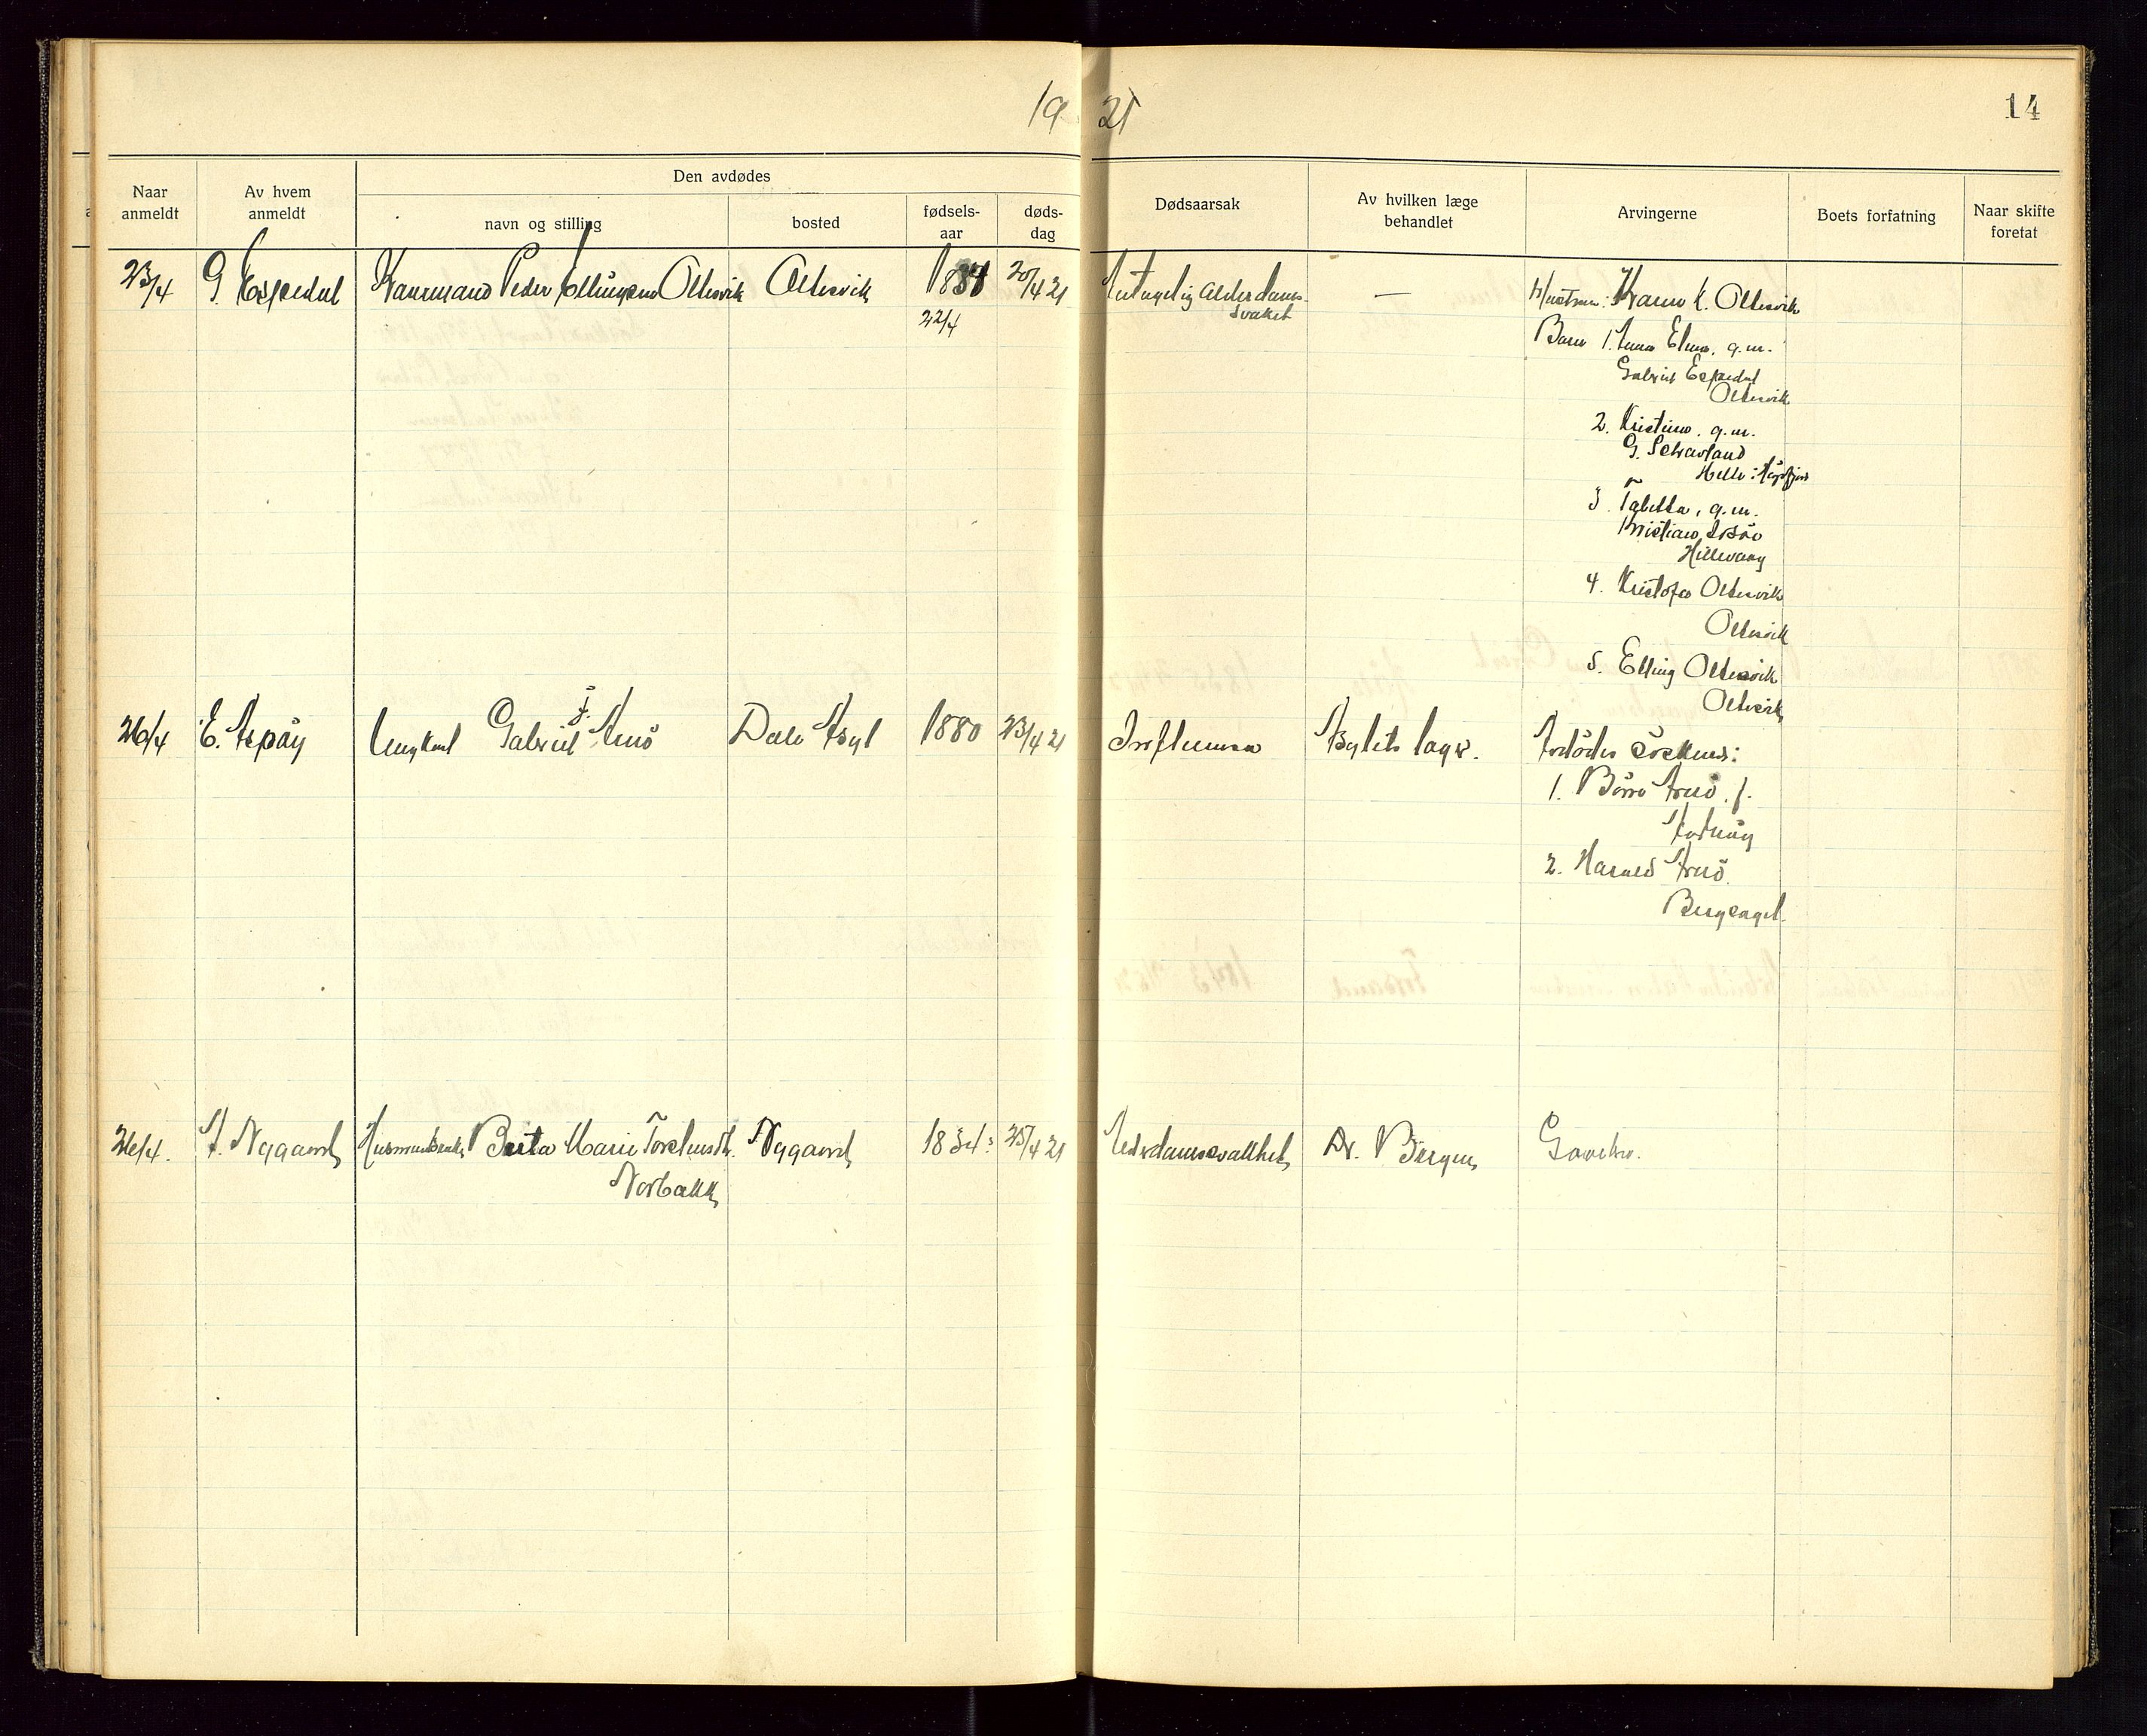 19 21
14
Naar anmeldt
Av hvem anmeldt
Den avdødes
navn og stilling
bosted
fødsels-aar
døds-dag
Dødsaarsak
Av hvilken læge behandlet
Arvingerne
Boets forfatning
Naar skifte foretat
23/4 G. Espedal Kaarmand Peder Ellingsen Oltesvik Oltesvik 1834 20/4 21 Antagelig Alderdoms- — Hustru: Karen K. Oltesvik
22/4 svakhet
Barn 1. Anna Elena, g.m.
Gabriel Espedal
Oltesvik
2. Kristine, g.m.
G. Scharland
Helle i Høgsfjord
3. Tabitha, g.m.
Kristian
Hillevaag
4. Kristofer Oltesvik
Oltesvik
5. Elling Oltesvik
Oltesvik
26/4 E. Aspøy Ungkarl Gabriel J. Arnø Dale Asyl 1880 23/4 21 Influensa Asylets læge. Avdødes søskend:
1. Børre Arnø, f.
2. Harald Arnø
Bergsagel
26/4. A. Nygaard Husmandsenke Berta Marie Torstensdtr. Nygaard 1834: 25/4 21 Alderdomssvakhet Dr. Børgen
Norbakk